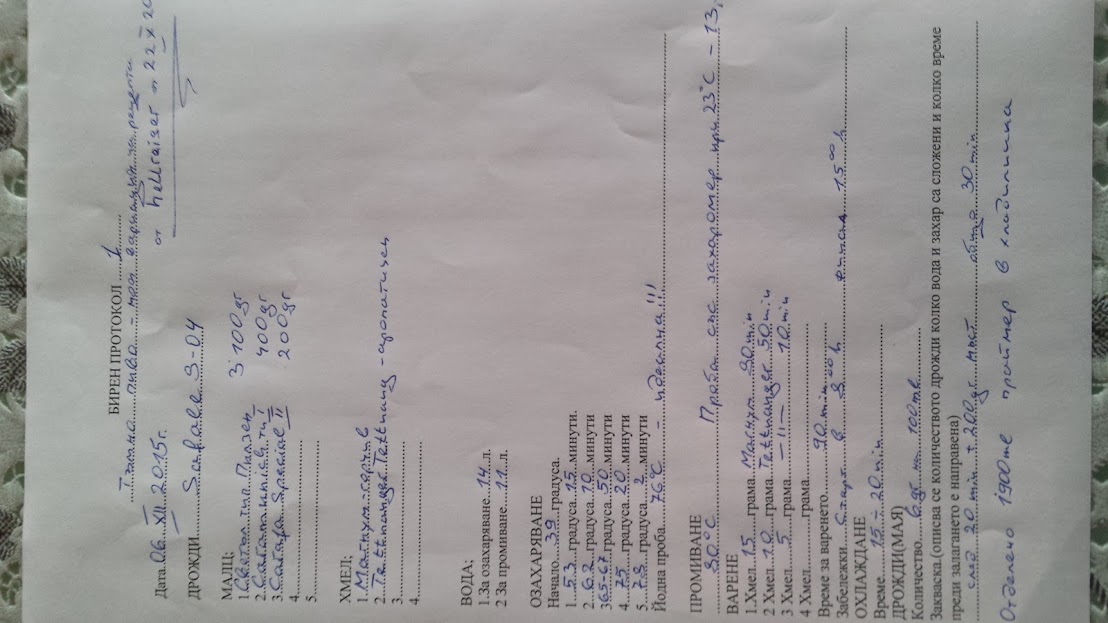 БИРЕН ПРОТОКОЛ ....1........
Тъмно пиво – моя вариация на рецепти
от hellraiser от 22 X 20
Дата 06 XII 2015г.
ДРОЖДИ..... Safale S-04
МАЛЦ;
1 Светъл тип Пилзен 3100gr
2. I 400gr
3. Carafa Special II 200gr
4.
5.
ХМЕЛ;
1. Магнум - горчив
2. Tettnanger Tettnang - ароматичен
3.
4.
ВОДА;
1.За озахаряване...14..л.
2 За промиване...11..л.
ОЗАХАРЯВАНЕ
Начало....39....градуса.
1....53....градуса..15..минути.
2....62....градуса..10..минути
3 65-67 градуса..50..минути
4....75....градуса..20..минути
5....78....градуса..2..минути
Йодна проба..... 76°C – идеална!!!
ПРОМИВАНЕ
80°C Проба със захаромер при 23°C – 13,
ВАРЕНЕ
1.Хмел..15...грама. Магнум 90 min
2 Хмел..10...грама. Tettnanger 50 min
3 Хмел...5....грама – 11 – 10 min
4 Хмел.......грама
Време за варенето..... 90 min
Забележки. Старт в 8⁰⁰ h 15⁰⁰ h
ОХЛАЖДАНЕ
Време....15 - 20 min
ДРОЖДИ(МАЯ)
Количество....6 gr на 100 ml
Закваска.(описва се количеството дрожди колко вода и захар са сложени и колко време
преди залагането е направена)
след 20 min + 200 gr мъст общо 30 min
Отделено 1900ml праймер в хладилника